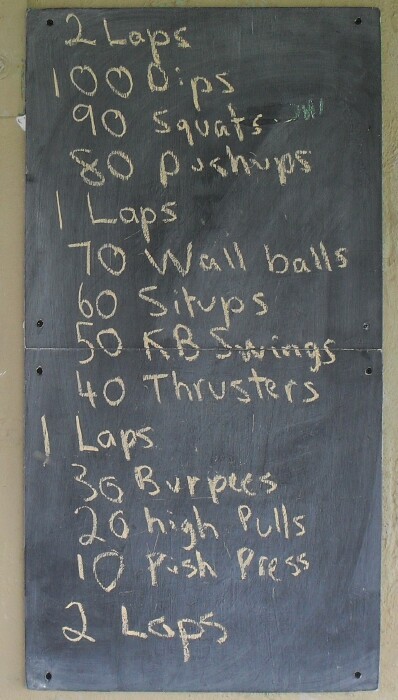 2 Laps
100 Dips
90 Squats
80 pushups
1 Laps
70 Wall balls
60 Situps
50 KB Swings
40 Thrusters
1 Laps
30 Burpees
20 high Pulls
10 Push Press
2 Laps